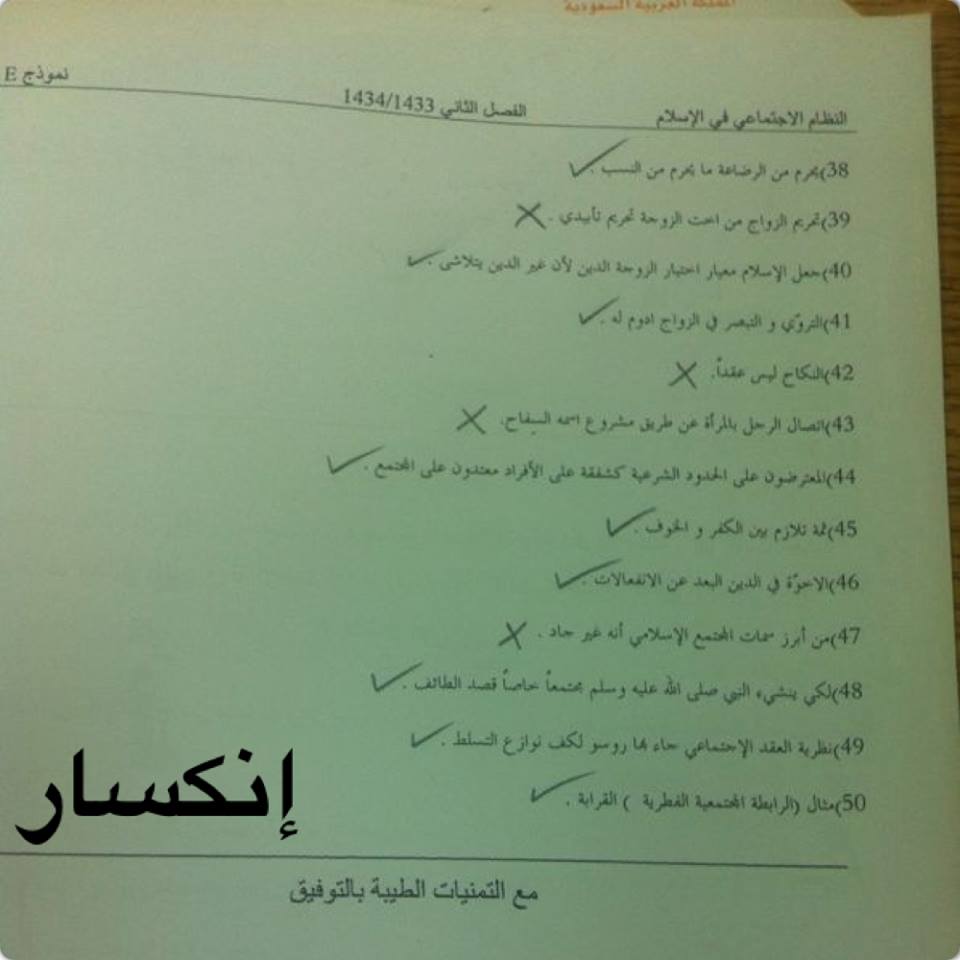 المملكة العربية السعودية
النظام الاجتماعي في الإسلام الفصل الثاني 1434/1433 نموذج E
38)يحرم من الرضاعة ما يحرم من النسب .
39)تحريم الزواج من اخت الزوجة تحريم تأبيدي .
40)جعل الإسلام معيار اختيار الزوجة الدين لأن غير الدين يتلاشى .
41)التروّي و التبصر في الزواج ادوم له .
42)النكاح ليس عقداً.
43)اتصال الرجل بالمرأة عن طريق مشروع اسمه السفاح.
44)المعترضون على الحدود الشرعية كشفقة على الأفراد معتدون على المجتمع .
45)ثمة تلازم بين الكفر و الخوف .
46)الاخوّة في الدين البعد عن الانفعالات .
47)من أبرز سمات المجتمع الإسلامي أنه غير جاد .
48)لكي ينشيء النبي صلى الله عليه وسلم مجتمعاً خاصاً قصد الطائف .
49)نظرية العقد الإجتماعي جاء بها روسو لكف نوازع التسلط .
50)مثال (الرابطة المجتمعية الفطرية ) القرابة .
إنكسار
مع التمنيات الطيبة بالتوفيق